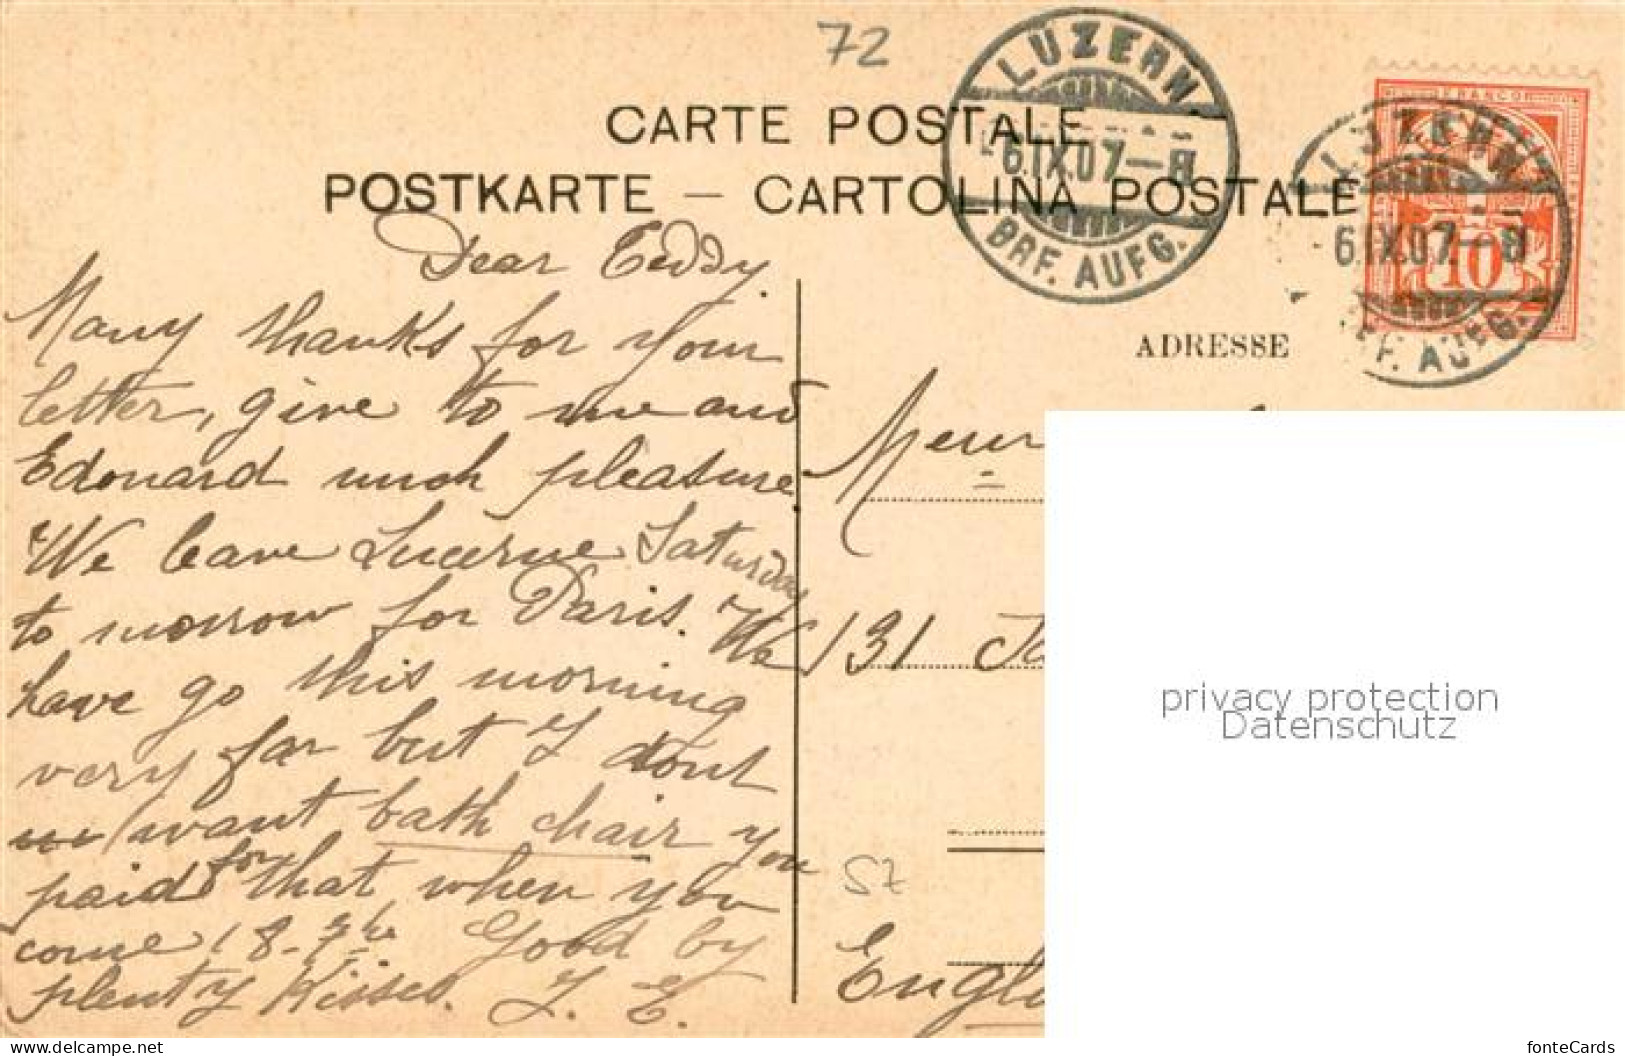 72
LUZERN
6.IX.07—8
BRF. AUFG.
FRANCO
LUZERN
6.IX.07.—8
10
BRF. AUFG.
CARTE POSTALE
POSTKARTE — CARTOLINA POSTALE
ADRESSE
Dear Teddy.
Many thanks for your
letter, give to me and
Edouard much pleasure.
We leave Lucerne Saturday
to morrow for Paris. We
have go this morning
very far but I dont
want bath chair you
paid for that when you
come! 8-
Good by
plenty Kisses. J. E.
131
57
Engl
privacy protection
Datenschutz
www.delcampe.net
fonteCards